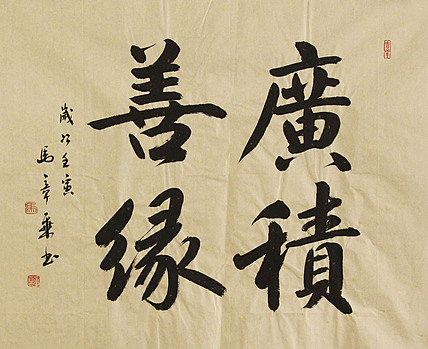 廣積
善緣
歲次壬寅
馬章乘書